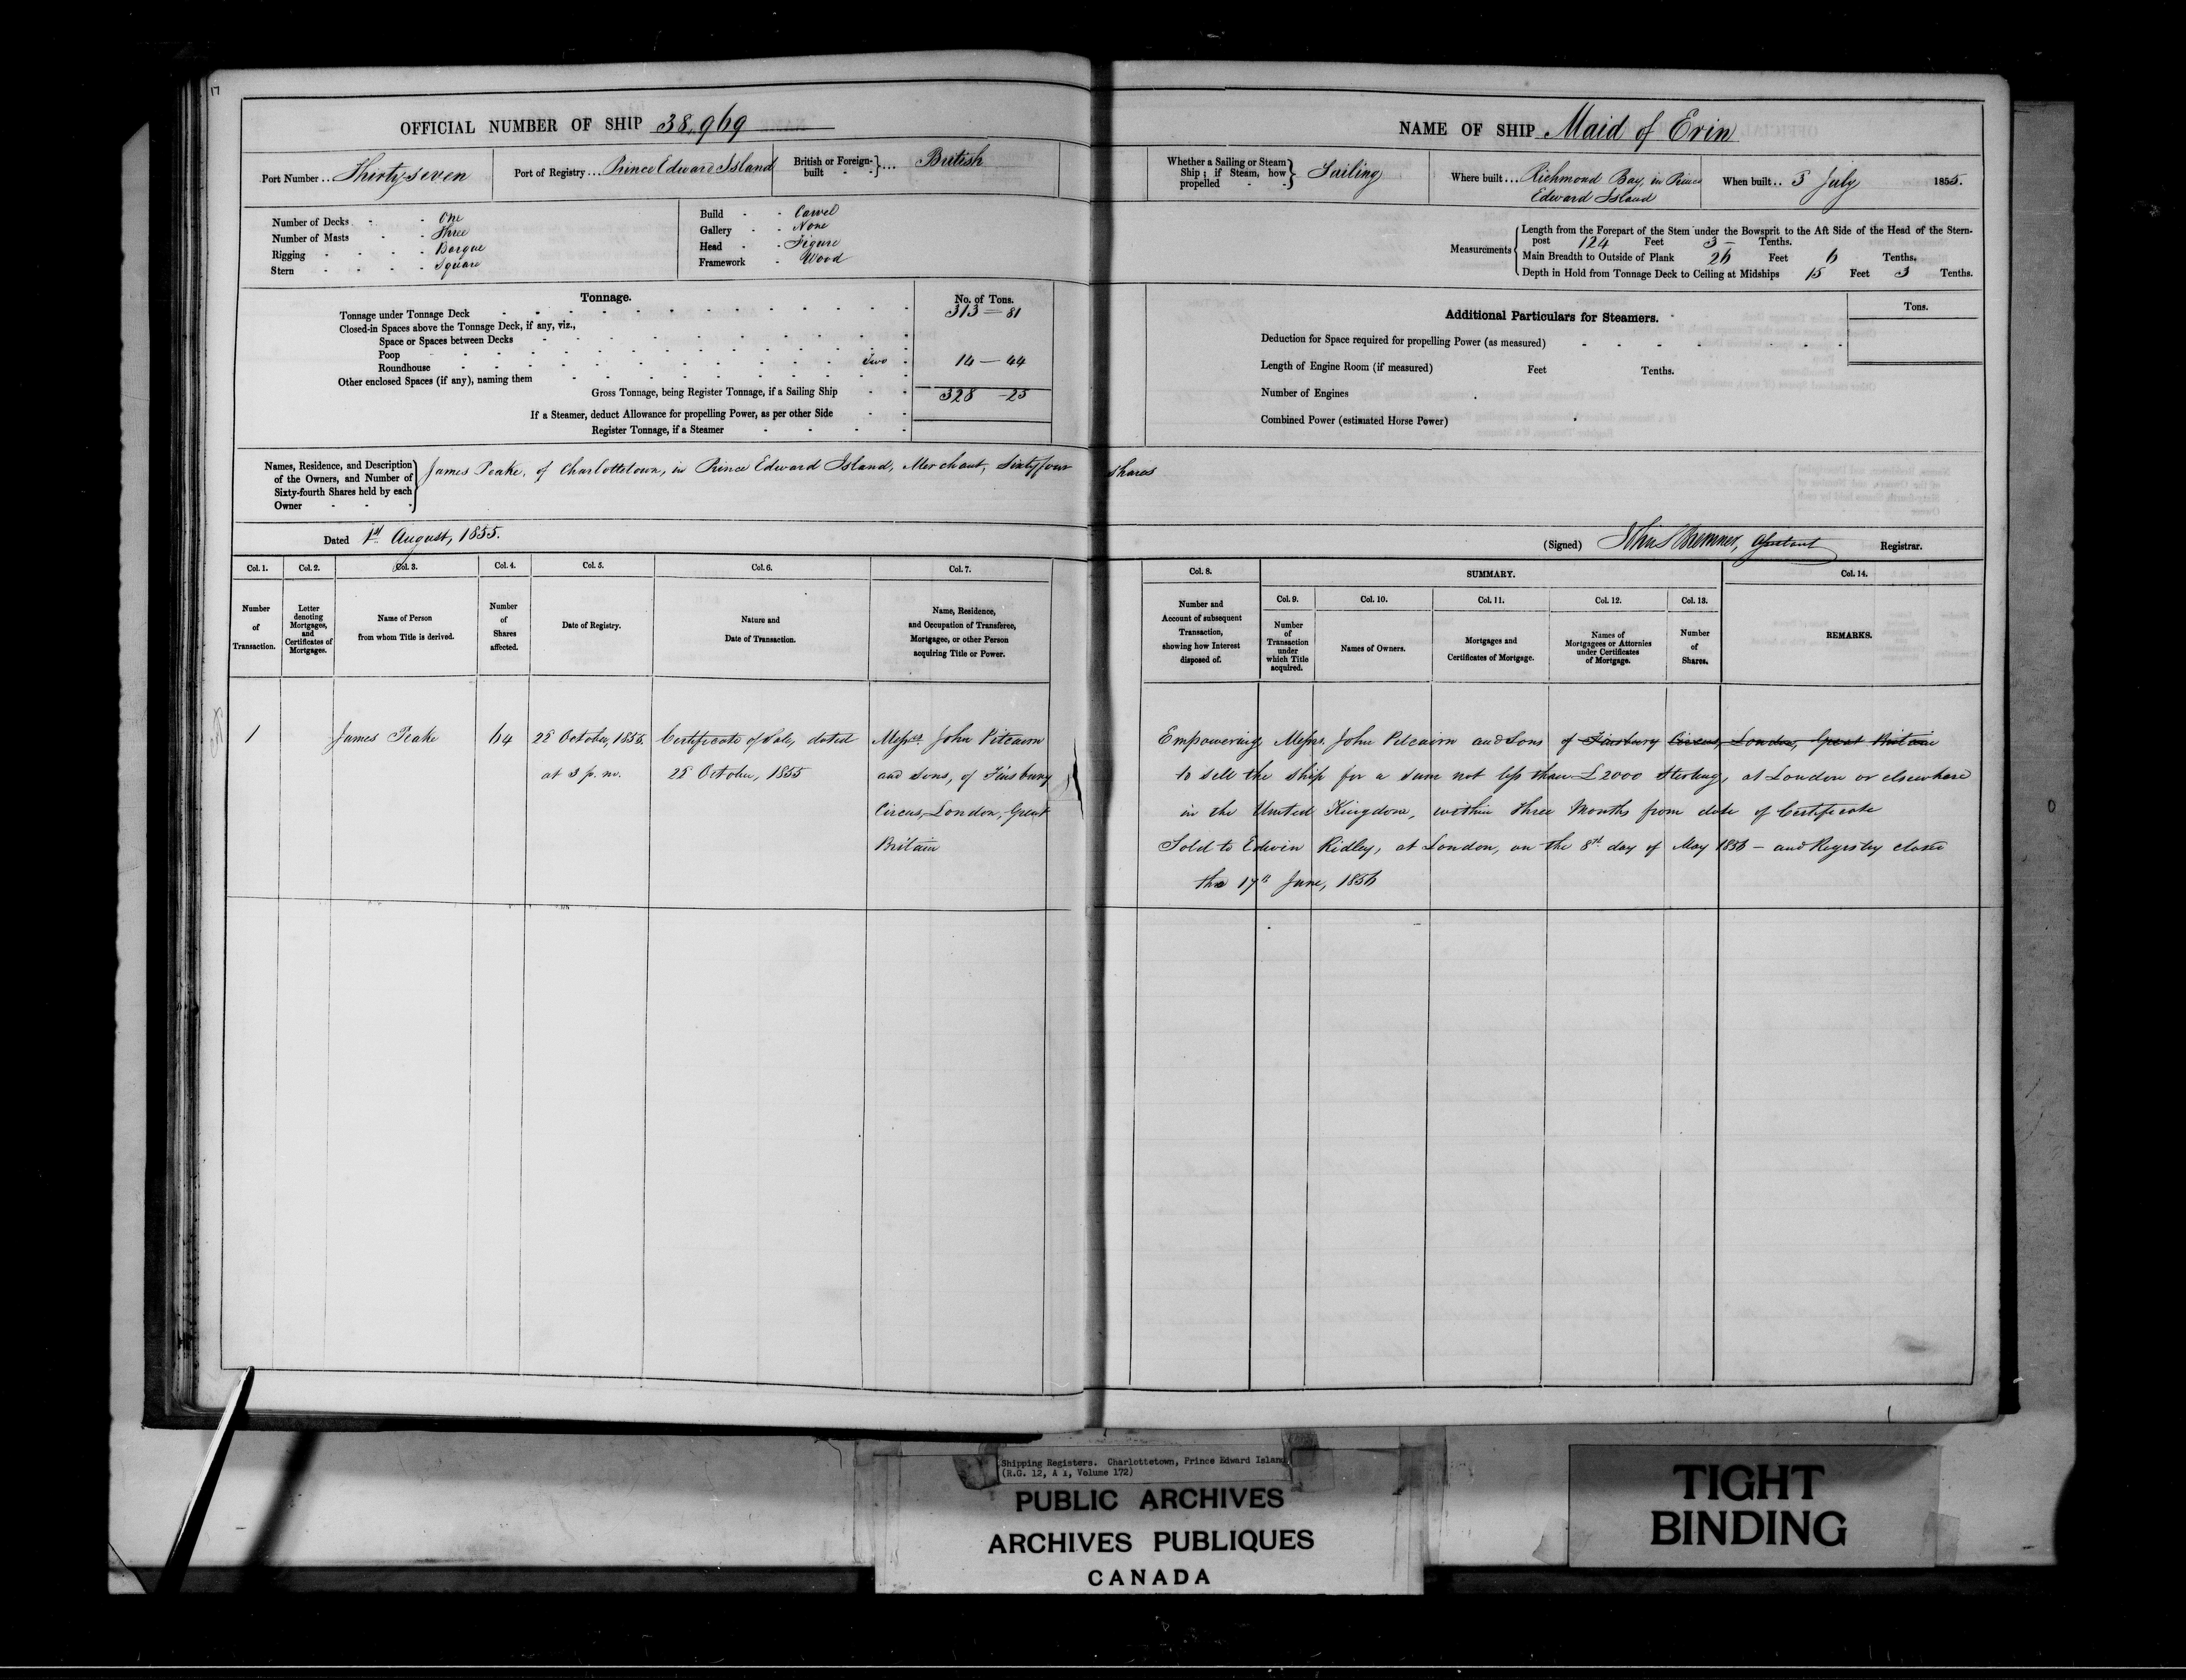 17
OFFICIAL NUMBER OF SHIP 38,969
Port Number .. Thirty seven
Port of Registry ... Prince Edward Island
British or Foreign-built } ... British
Number of Decks One
Number of Masts Three
Rigging Barque
Stern Square
Build Carvel
Gallery None
Head Figure
Framework Wood
Tonnage.
No. of Tons.
Tonnage under Tonnage Deck 313 = 81
Closed-in Spaces above the Tonnage Deck, if any, viz.,
Space or Spaces between Decks
Poop
Roundhouse Two 14 — 44
Other enclosed Spaces (if any), naming them
Gross Tonnage, being Register Tonnage, if a Sailing Ship 328 - 25
If a Steamer, deduct Allowance for propelling Power, as per other Side
Register Tonnage, if a Steamer
Names, Residence, and Description of the Owners, and Number of Sixty-fourth Shares held by each Owner
James Peake, of Charlottetown, in Prince Edward Island, Merchant, Sixty four shares
Dated 1st August, 1855.
NAME OF SHIP Maid of Erin
Whether a Sailing or Steam Ship; if Steam, how propelled } Sailing
Where built ... Richmond Bay, in Prince
Edward Island
When built .. 3 July 1855.
Measurements
Length from the Forepart of the Stem under the Bowsprit to the Aft Side of the Head of the Stern-
post 124 Feet 3 — Tenths.
Main Breadth to Outside of Plank 26 Feet 6 Tenths.
Depth in Hold from Tonnage Deck to Ceiling at Midships 15 Feet 3 Tenths.
Additional Particulars for Steamers.
Tons.
Deduction for Space required for propelling Power (as measured)
Length of Engine Room (if measured) Feet Tenths.
Number of Engines
Combined Power (estimated Horse Power)
(Signed) John S Bremner, Registrar.
Col. 1. Col. 2. Col. 3. Col. 4. Col. 5. Col. 6. Col. 7.
Number of Transaction.
Letter denoting Mortgages, and Certificates of Mortgages.
Name of Person from whom Title is derived.
Number of Shares affected.
Date of Registry.
Nature and Date of Transaction.
Name, Residence, and Occupation of Transferee, Mortgagee, or other Person acquiring Title or Power.
Col. 8. SUMMARY. Col. 14.
Col. 9. Col. 10. Col. 11. Col. 12. Col. 13.
Number and Account of subsequent Transaction, showing how Interest disposed of.
Number of Transaction under which Title acquired.
Names of Owners.
Mortgages and Certificates of Mortgage.
Names of Mortgagees or Attornies under Certificates of Mortgage.
Number of Shares.
REMARKS.
1 James Peake 64 25 October, 1855. Certificate of Sale, dated Messrs. John Pitcairn
at 3 p.m. 25 October, 1855 and Sons, of Finsbury
Circus, London, Great
Britain
Empowering Messrs. John Pitcairn and Sons of Finsbury Circus, London, Great Britain
to sell the ship for a sum not less than £2000 Sterling, at London or elsewhere
in the United Kingdom, within Three Months from date of Certificate
Sold to Edwin Ridley, at London, on the 8th day of May 1856 — and Registry closed
the 17th June, 1856
Shipping Registers. Charlottetown, Prince Edward Island
(R.G. 12, A 1, Volume 172)
PUBLIC ARCHIVES
ARCHIVES PUBLIQUES
CANADA
TIGHT
BINDING